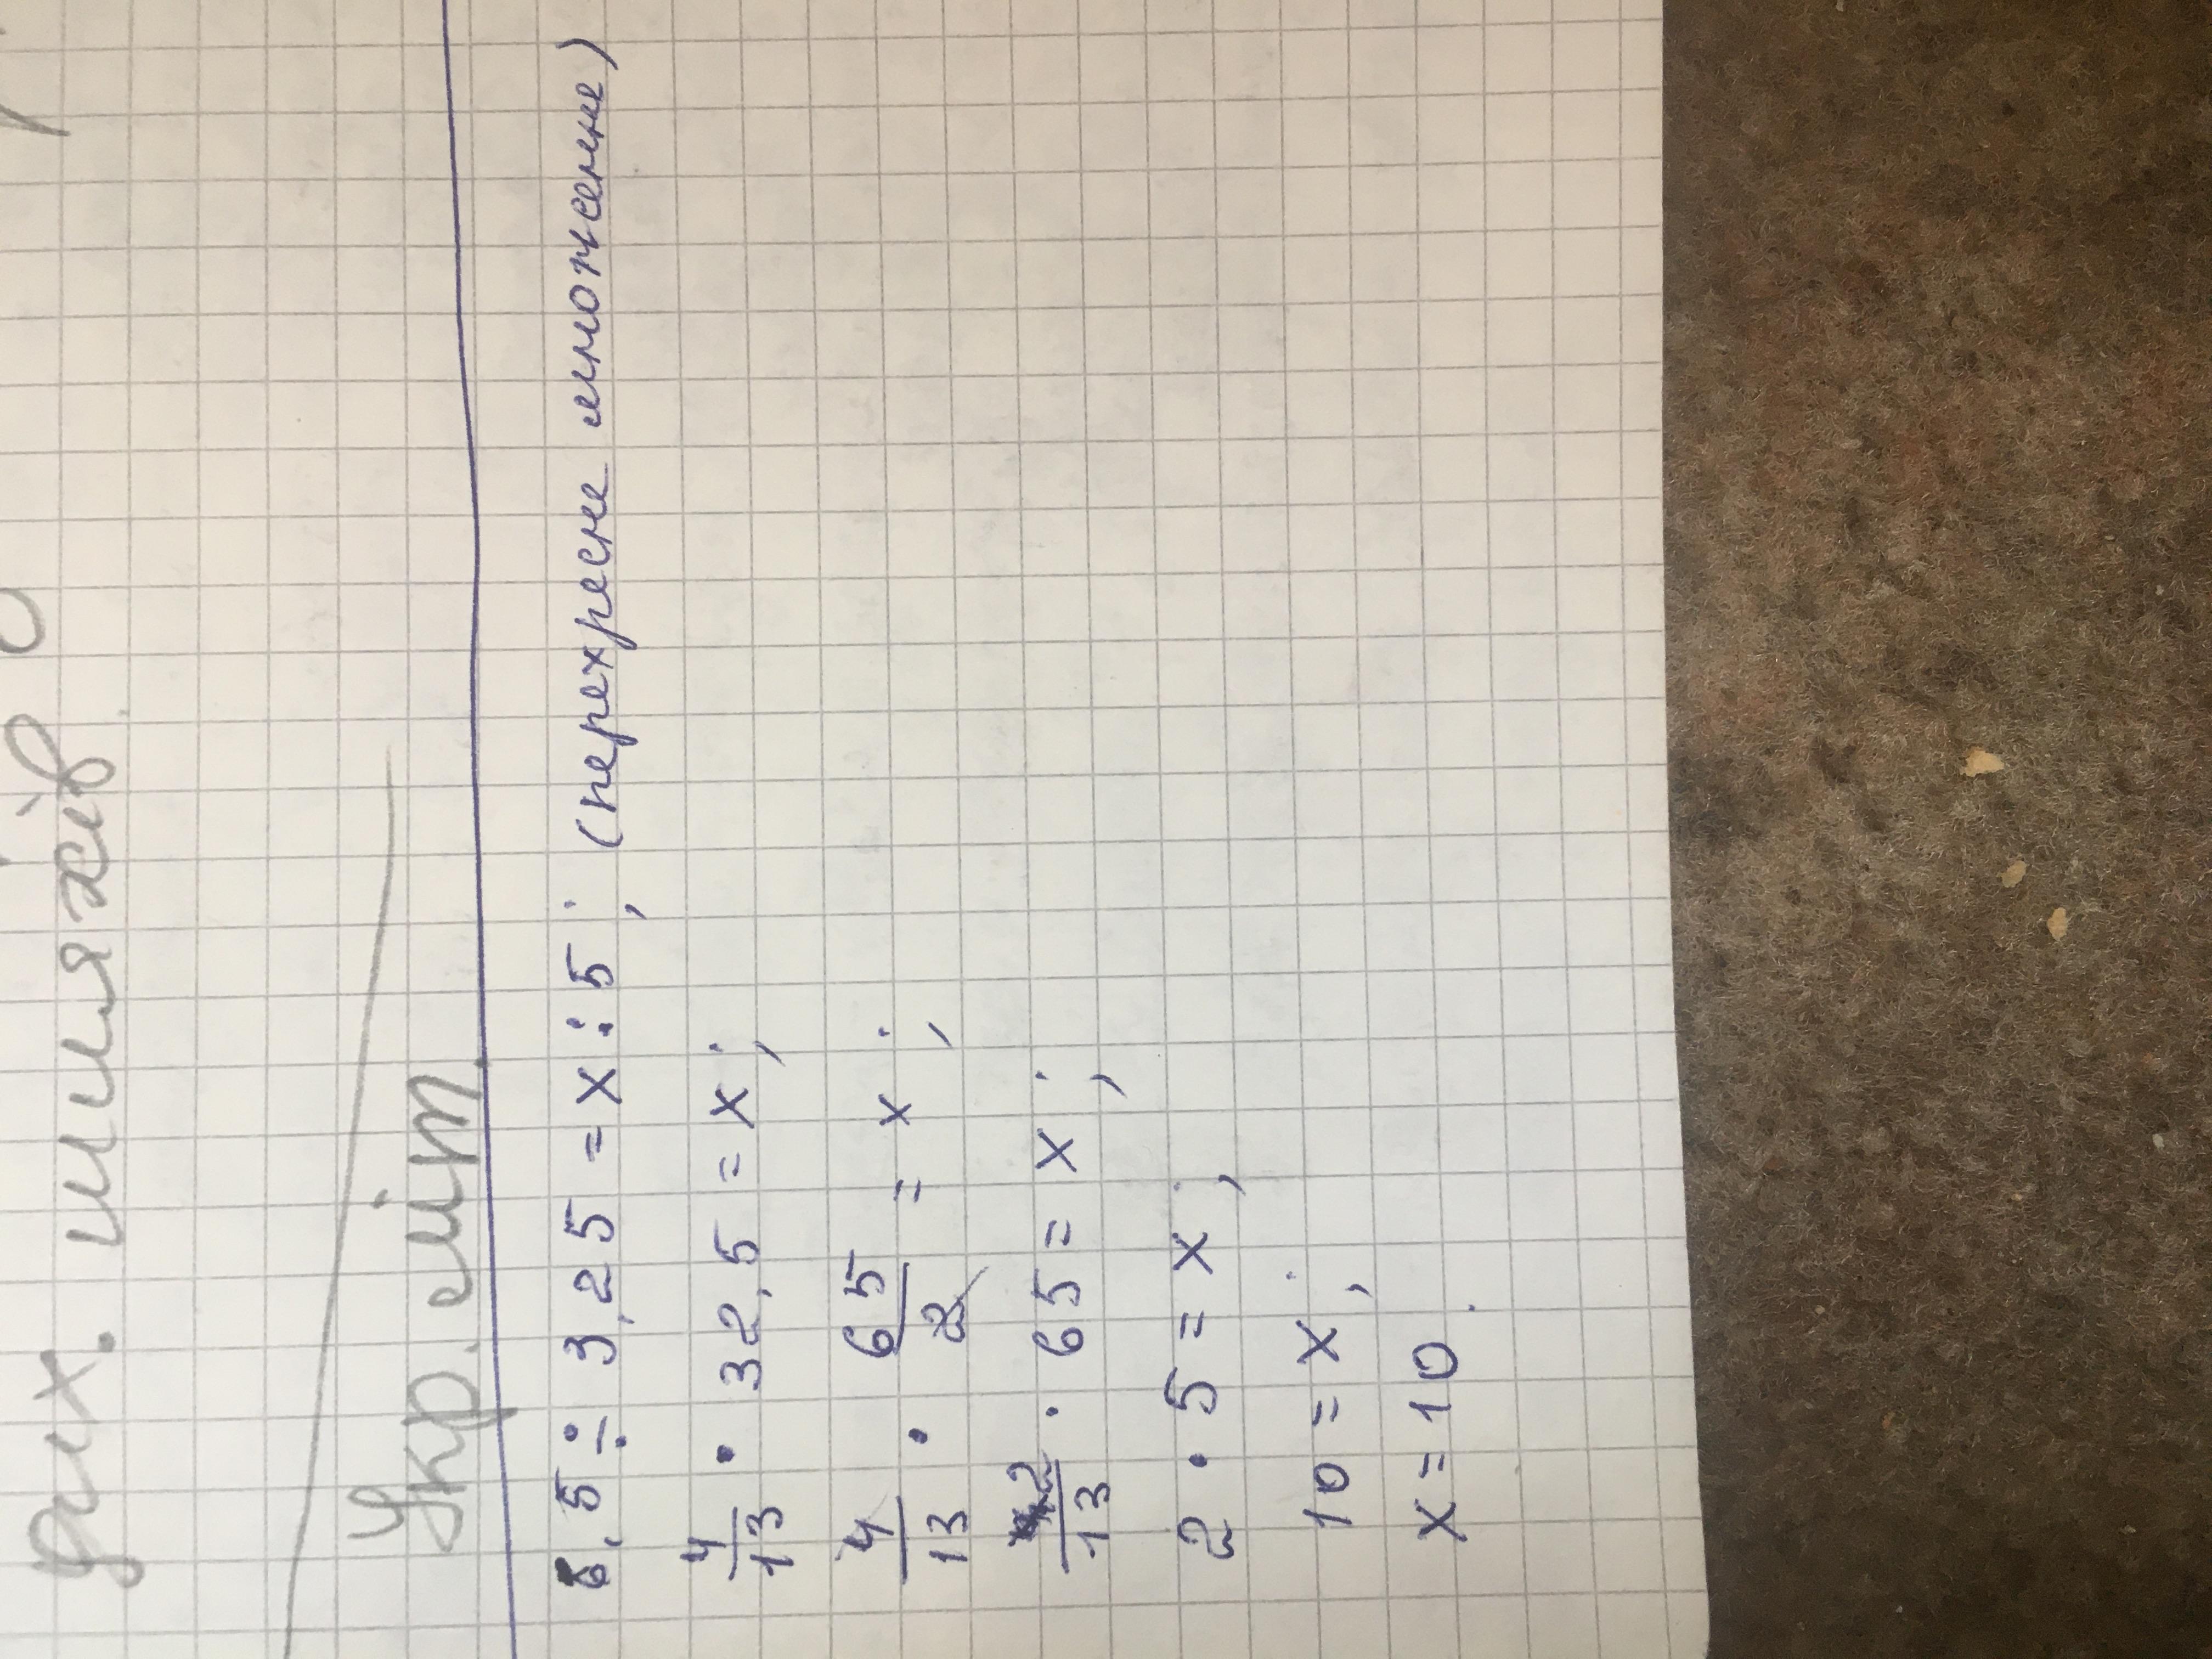 дих. шляхів
Укр. літ.
6,5 ÷ 3,25 = x : 5; (перехресне множення)
4/13 · 32,5 = x;
4/13 · 65/2 = x;
2/13 · 65 = x;
2 · 5 = x;
10 = x;
x = 10.